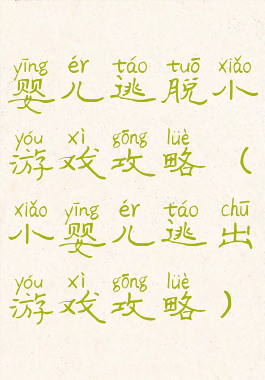 yīng ér táo tuō xiǎo
婴儿逃脱小
yóu xì gōng lüè
游戏攻略（
xiǎo yīng ér táo chū
小婴儿逃出
yóu xì gōng lüè
游戏攻略）